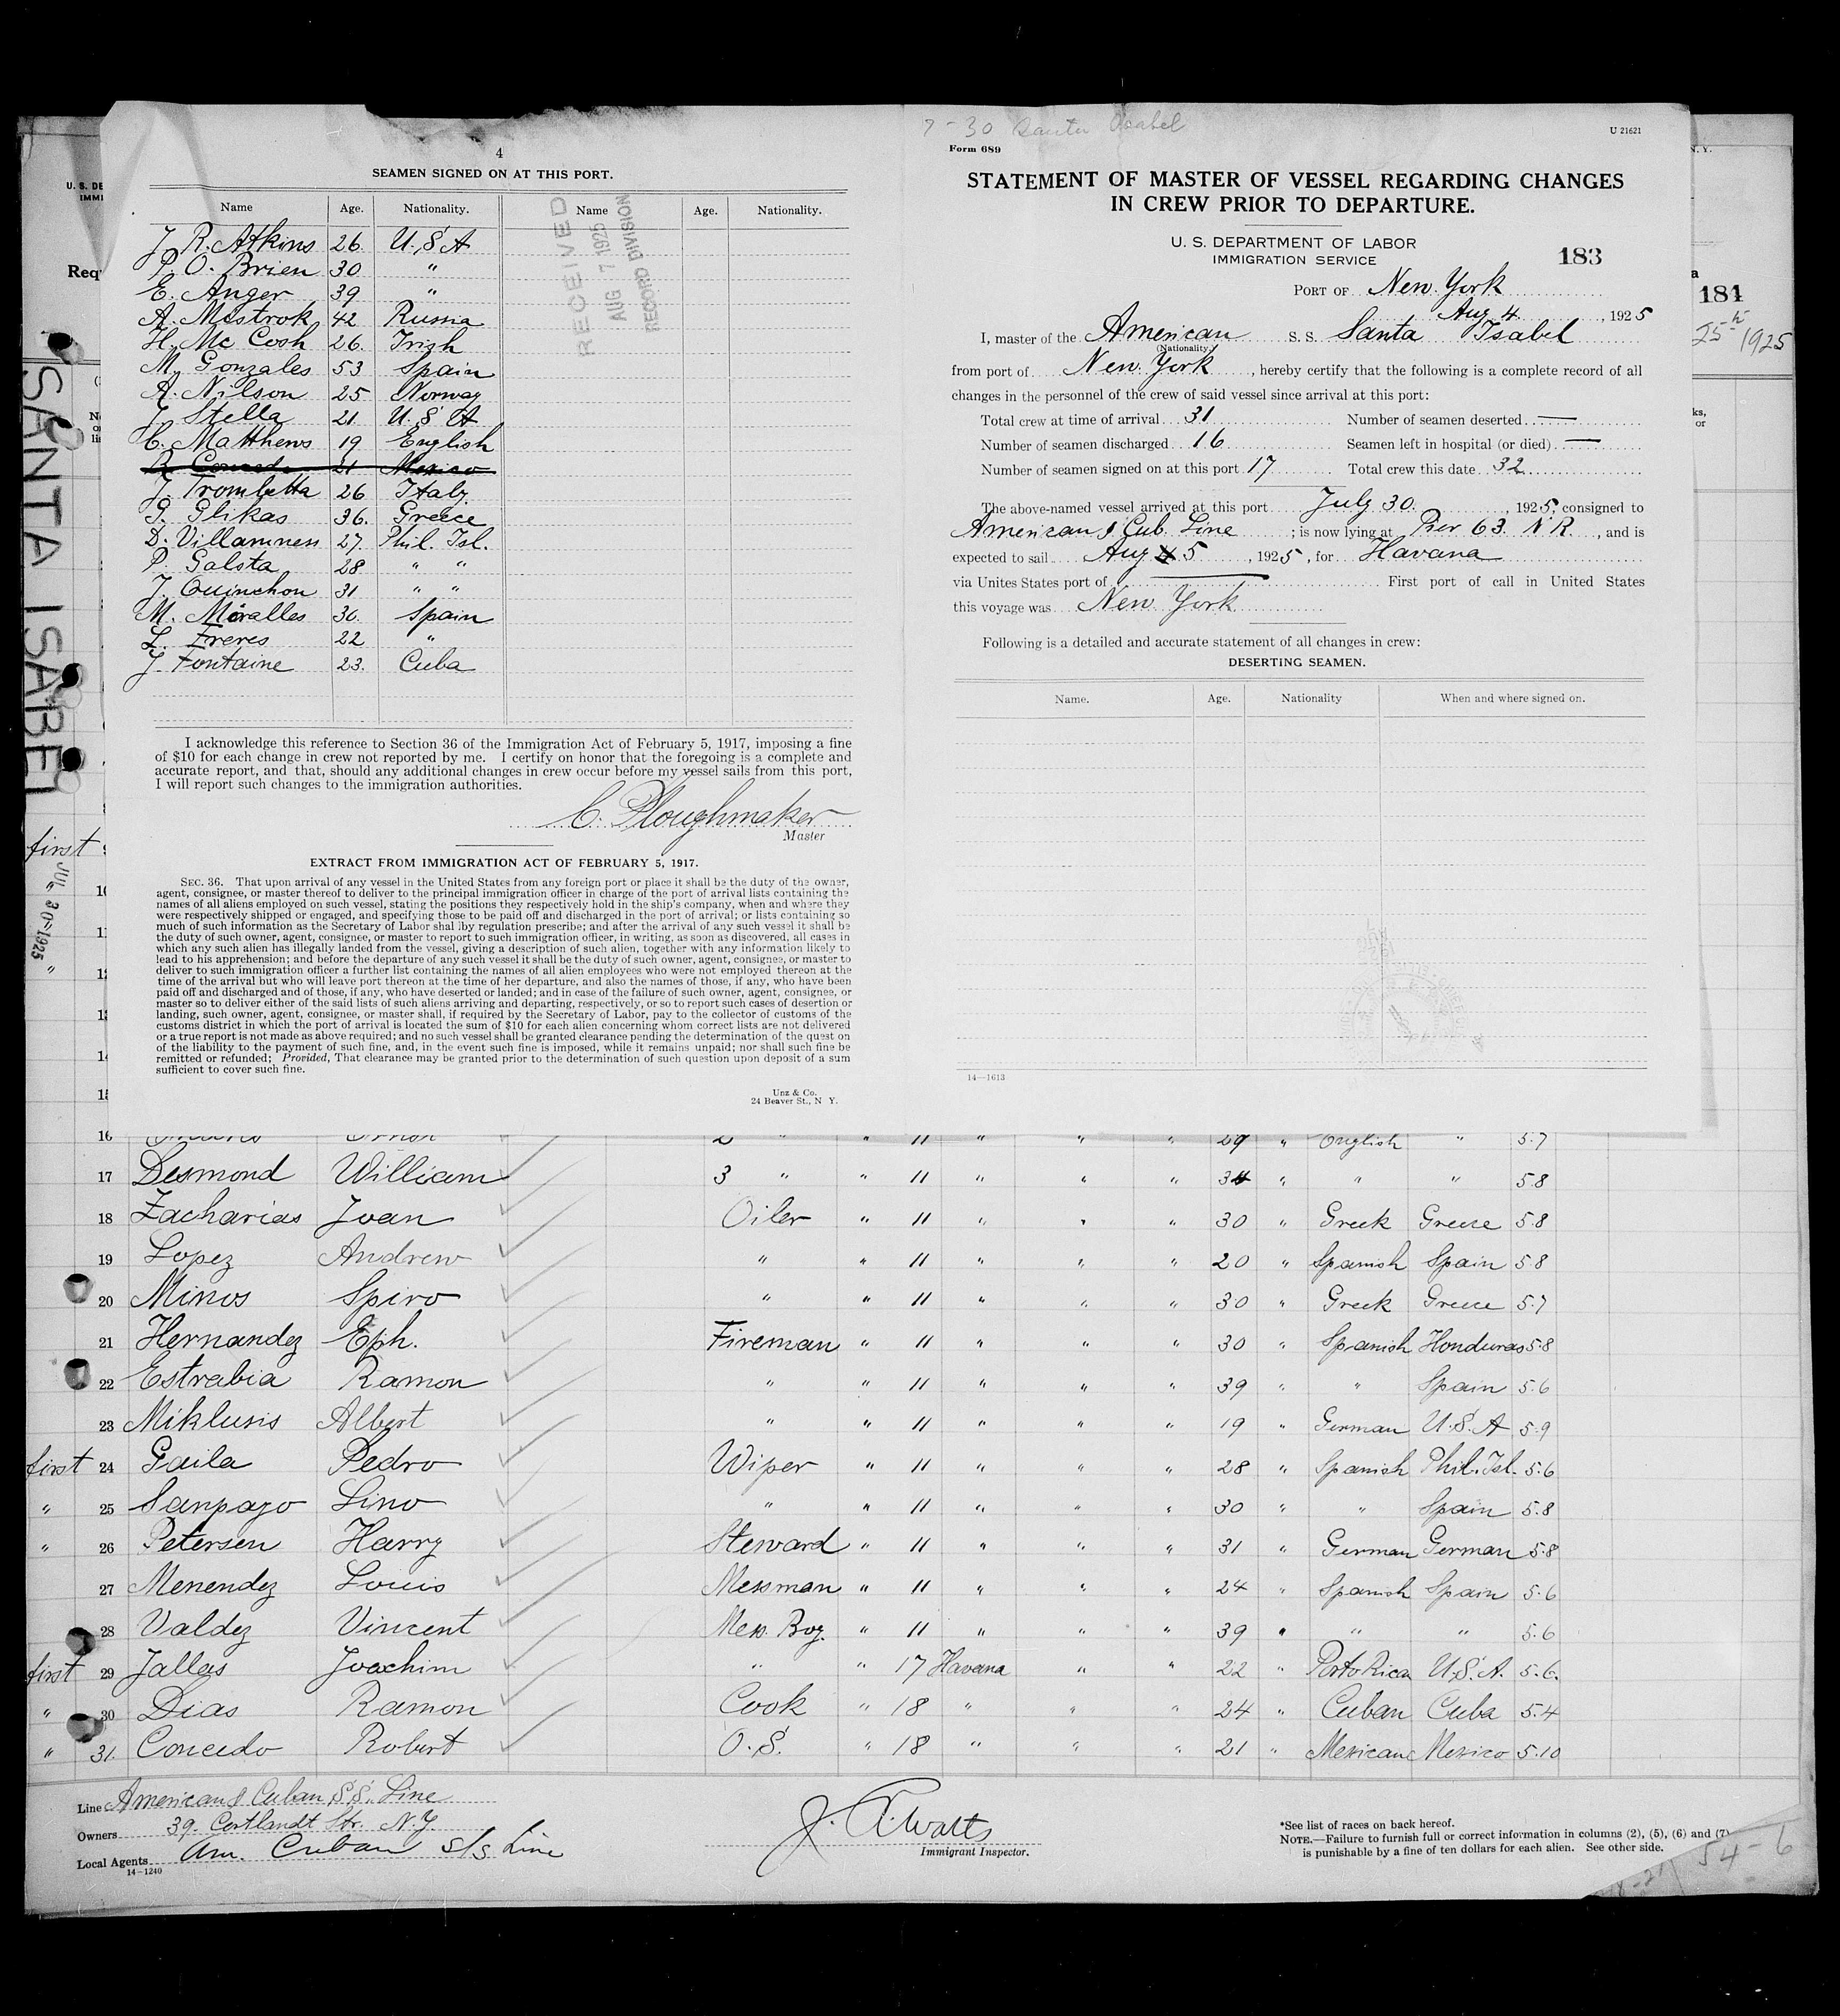 4
SEAMEN SIGNED ON AT THIS PORT.
Name Age. Nationality. Name Age. Nationality.
J. R. Atkins 26. U.S.A
P. O. Brien 30 "
E. Anger 39 "
A. Mestrok 42 Russia
H. Mc Cosh 26. Irish
M. Gonzales 53 Spain
A. Nilson 25 Norway
J. Stella 21 U.S.A
C. Matthews 19 English
21 Mexico
J. Trombetta 26 Italy
G. Glikas 36. Greece
D. Villaminen 27. Phil. Isl.
P. Galsta 28 " "
J. Quinchon 31 " "
M. Moralles 30. Spain
L. Freres 22 "
J. Fontaine 23. Cuba
RECEIVED
AUG 7 1925
RECORD DIVISION
I acknowledge this reference to Section 36 of the Immigration Act of February 5, 1917, imposing a fine
of $10 for each change in crew not reported by me. I certify on honor that the foregoing is a complete and
accurate report, and that, should any additional changes in crew occur before my vessel sails from this port,
I will report such changes to the immigration authorities.
C. Ploughmaker
Master
EXTRACT FROM IMMIGRATION ACT OF FEBRUARY 5, 1917.
SEC. 36. That upon arrival of any vessel in the United States from any foreign port or place it shall be the duty of the owner,
agent, consignee, or master thereof to deliver to the principal immigration officer in charge of the port of arrival lists containing the
names of all aliens employed on such vessel, stating the positions they respectively hold in the ship's company, when and where they
were respectively shipped or engaged, and specifying those to be paid off and discharged in the port of arrival; or lists containing so
much of such information as the Secretary of Labor shal lby regulation prescribe; and after the arrival of any such vessel it shall be
the duty of such owner, agent, consignee, or master to report to such immigration officer, in writing, as soon as discovered, all cases in
which any such alien has illegally landed from the vessel, giving a description of such alien, together with any information likely to
lead to his apprehension; and before the departure of any such vessel it shall be the duty of such owner, agent, consignee, or master to
deliver to such immigration officer a further list containing the names of all alien employees who were not employed thereon at the
time of the arrival but who will leave port thereon at the time of her departure, and also the names of those, if any, who have been
paid off and discharged and of those, if any, who have deserted or landed; and in case of the failure of such owner, agent, consignee, or
master so to deliver either of the said lists of such aliens arriving and departing, respectively, or so to report such cases of desertion or
landing, such owner, agent, consignee, or master shall, if required by the Secretary of Labor, pay to the collector of customs of the
customs district in which the port of arrival is located the sum of $10 for each alien concerning whom correct lists are not delivered
or a true report is not made as above required; and no such vessel shall be granted clearance pending the determination of the quest on
of the liability to the payment of such fine, and, in the event such fine is imposed, while it remains unpaid; nor shall such fine be
remitted or refunded; Provided, That clearance may be granted prior to the determination of such question upon deposit of a sum
sufficient to cover such fine.
Unz & Co.
24 Beaver St., N Y.
7-30 Santa Isabel
U 21621
Form 689
STATEMENT OF MASTER OF VESSEL REGARDING CHANGES
IN CREW PRIOR TO DEPARTURE.
U. S. DEPARTMENT OF LABOR
IMMIGRATION SERVICE
183
PORT OF New York
Aug 4, 1925
I, master of the American S. S. Santa Isabel
(Nationality)
from port of New York, hereby certify that the following is a complete record of all
changes in the personnel of the crew of said vessel since arrival at this port:
Total crew at time of arrival 31 Number of seamen deserted —
Number of seamen discharged 16 Seamen left in hospital (or died) —
Number of seamen signed on at this port 17 Total crew this date 32
The above-named vessel arrived at this port July 30, 1925, consigned to
American & Cub. Line; is now lying at Pier 63 N R., and is
expected to sail Aug 5, 1925, for Havana
via Unites States port of — First port of call in United States
this voyage was New York
Following is a detailed and accurate statement of all changes in crew:
DESERTING SEAMEN.
Name. Age. Nationality When and where signed on.
14—1613
U. S. DE
IMMI
Req
N. Y.
181
25th 1925
SANTA ISABEL
first
JUL 30 1925
"
10
11
12
13
14
15
16 2 " " 11 " " " 29 " English " 5.7
17 Desmond William 3 " " 11 " " " 34 " " " 5.8
18 Zacharias Joan Oiler " 11 " " " 30 " Greek Greece 5.8
19 Lopez Andrew " " 11 " " " 20 " Spanish Spain 5.8
20 Minos Spiro " " 11 " " " 30 " Greek Greece 5.7
21 Hernandez Eph. Fireman " 11 " " " 30 " Spanish Honduras 5.8
22 Estrabia Ramon " " 11 " " " 39 " " Spain 5.6
23 Miklusis Albert " " 11 " " " 19 " German U.S.A 5.9
first 24 Gaila Pedro Wiper " 11 " " " 28 " Spanish Phil. Isl. 5.6
" 25 Sanpayo Lino " " 11 " " " 30 " " Spain 5.8
" 26 Petersen Harry Steward " 11 " " " 31 " German German 5.8
27 Menendez Louis Messman " 11 " " " 24 " Spanish Spain 5.6
28 Valdez Vincent Mess Boy. " 11 " " " 39 " " " 5.6
first 29 Jallas Joachim " " 17 Havana " " 22 " Porto Rican U.S.A. 5.6.
" 30 Dias Ramon Cook " 18 " " " 24 " Cuban Cuba 5.4
" 31. Concedo Robert O.S. " 18 " " " 21 " Mexican Mexico 5.10
Line American & Cuban S.S. Line
Owners 39. Cortlandt Str. N.Y.
Local Agents Am. Cuban S/S Line
14—1240
J. A. Watts
Immigrant Inspector.
*See list of races on back hereof.
NOTE.—Failure to furnish full or correct information in columns (2), (5), (6) and (7)
is punishable by a fine of ten dollars for each alien. See other side.
54-6